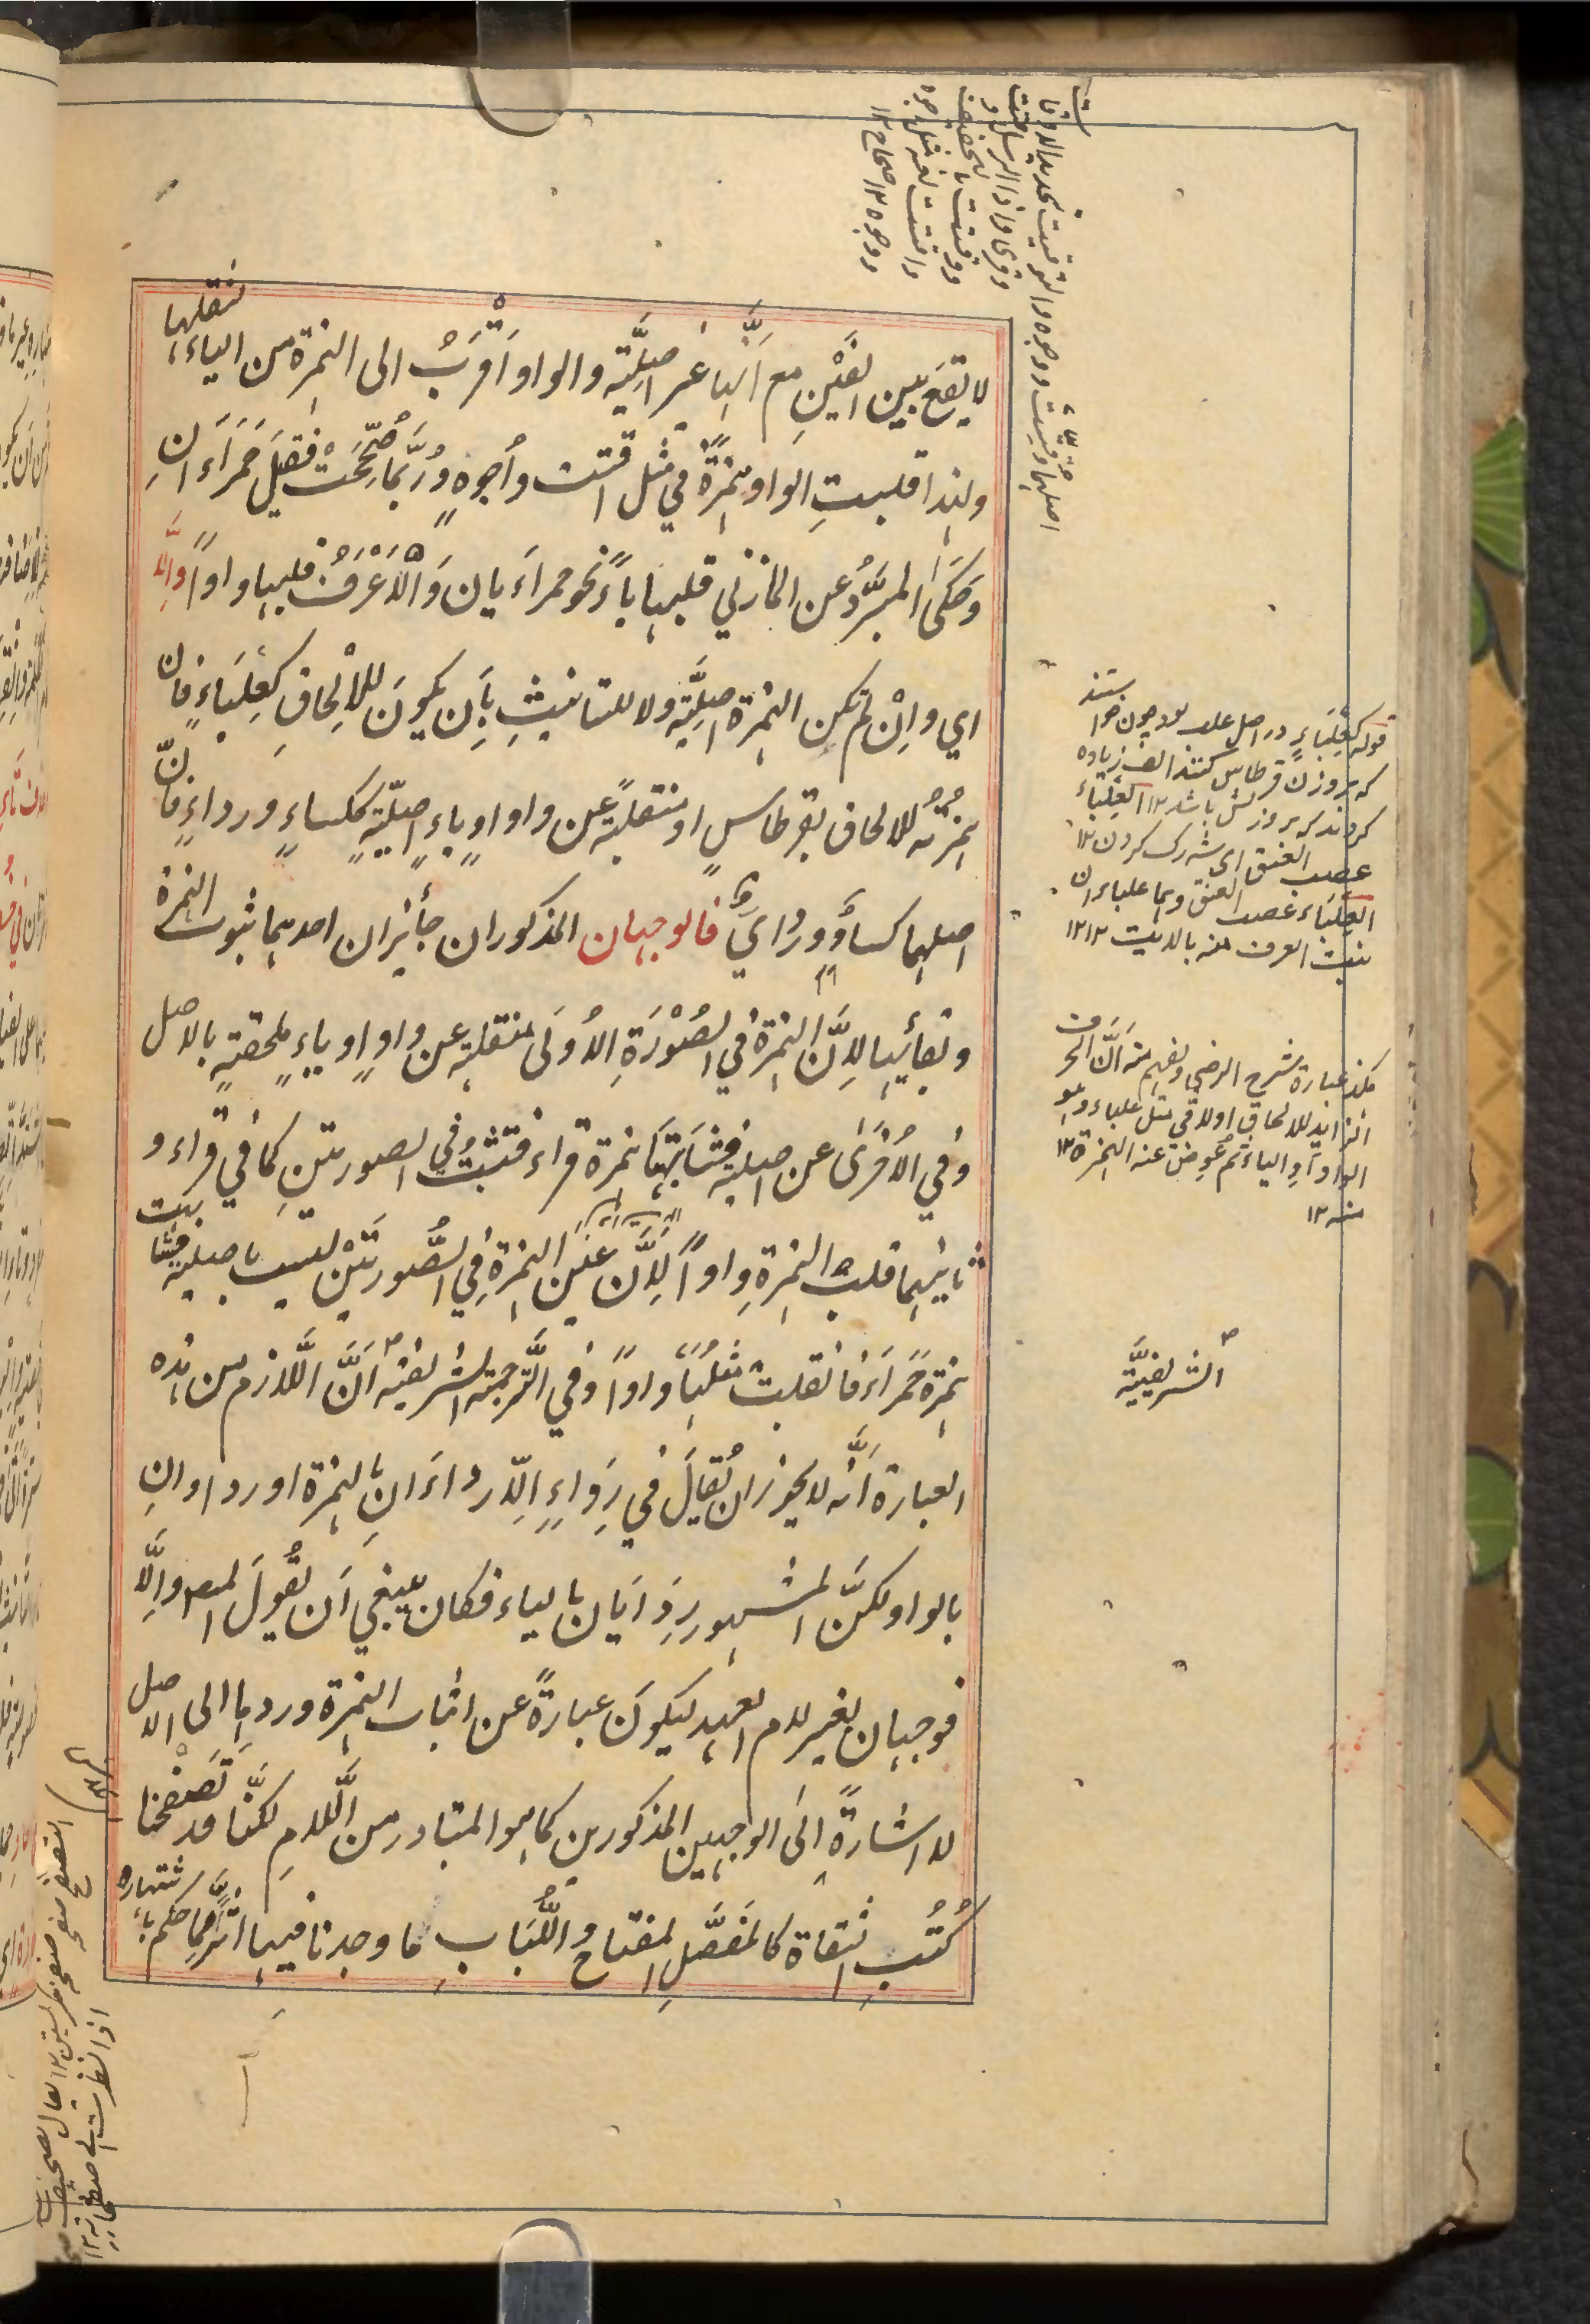 لا تقع بين الفين مع أنها غير اصليَّة والواو أقْرَبُ الى الهمزة من الياء لثقلها
ولهذا قلبتِ الواو همزةً في مثل اقتت وأُجوهٍ ورُبَّما صُحِّحَتْ فقيل حَمراءَانِ
وحَكىٰ المبرَّدُ عن المازني قلبها ياءً نحو حمراَيان وَالْاَعْرَفُ قلبها واواً والَّا
اي وإِنْ لم تكن الهمزة اصليَّة ولا للتانيثِ بأَن يكونَ للالْحاقِ كعِلبَاءٍ فان
همزتُه للالحاق بقرطاسٍ او منقلبةً عن واو او ياءٍ اصليّةٍ ككساءٍ ورداءٍ فانّ
اصلهما كساوٌ وردايٌ فالوجهان المذكوران جائزان احدهما ثبوت الهمزة
وبقائها لِاَنَّ الهمزة في الصُوْرَةِ الاُوْلَى منقلبة عن واوٍ او ياءٍ ملحقةٍ بالاصل
وفي الاُخرىٰ عن اصلية فشابهتا همزة قراء فتثبت في الصورتينِ كما في قراء و
ثانيهما قلب الهمزة واواً لِاَنَّ عين الهمزة في الصُّورتَيْن ليست باصلية فشابهت
همزة حَمراءَ فانقلبت مثلها واواً وفي التَّرجمة الشريفية اَنَّ اللّازم من هذه
العبارة أنَّه لا يجوز ان يُقالَ في رِداءٍ اِلّا رداءَانِ بالهمزة او رداوانِ
بالواو لكنَّ المشهور ردَايان بالياء فكان ينبغي اَن يقُولَ المصـ والَّا
فوجهان بغير لام العهد ليكونَ عبارةً عن اثبات الهمزة وردها الى الاصل
لا اشارةً اِلى الوجهين المذكورين كما هو المتبادر من الَّلامِ لكنَّا قد تَصَفَّحنا
كُتُبِ الثقاة كالمفصَّلِ والمفتاح واللُّبَابِ فما وجدنا فيها اثراً مما حكم باشتهاره
اصلهما وقيت ووجوه والتوقيت تحديد الاوقات
وقرئ واذا الرسل وقتت
ووقتت بالتخفيف
واقتت لغة مثل اجوه
ووجوه ١٢ صحاح ١٢
قوله كعِلبَاءٍ در اصل علب بود چون خواستند
كه بروزن قرطاس كنند الف زياده
كردند كه بروزنش باشد ١٢ العِلباء
عصب العنق اى شه رك كردن ١٢
العلباء عصب العنق وهما علباءان
هكذا عبارة شرح الرضي ويفهم منه اَنَّ الحرف
الزايد للالحاق اولا في مثل علباء وهو
الواو او الياء ثم عوض عنه الهمزة ١٢
منه ١٢
الشريفيَّة